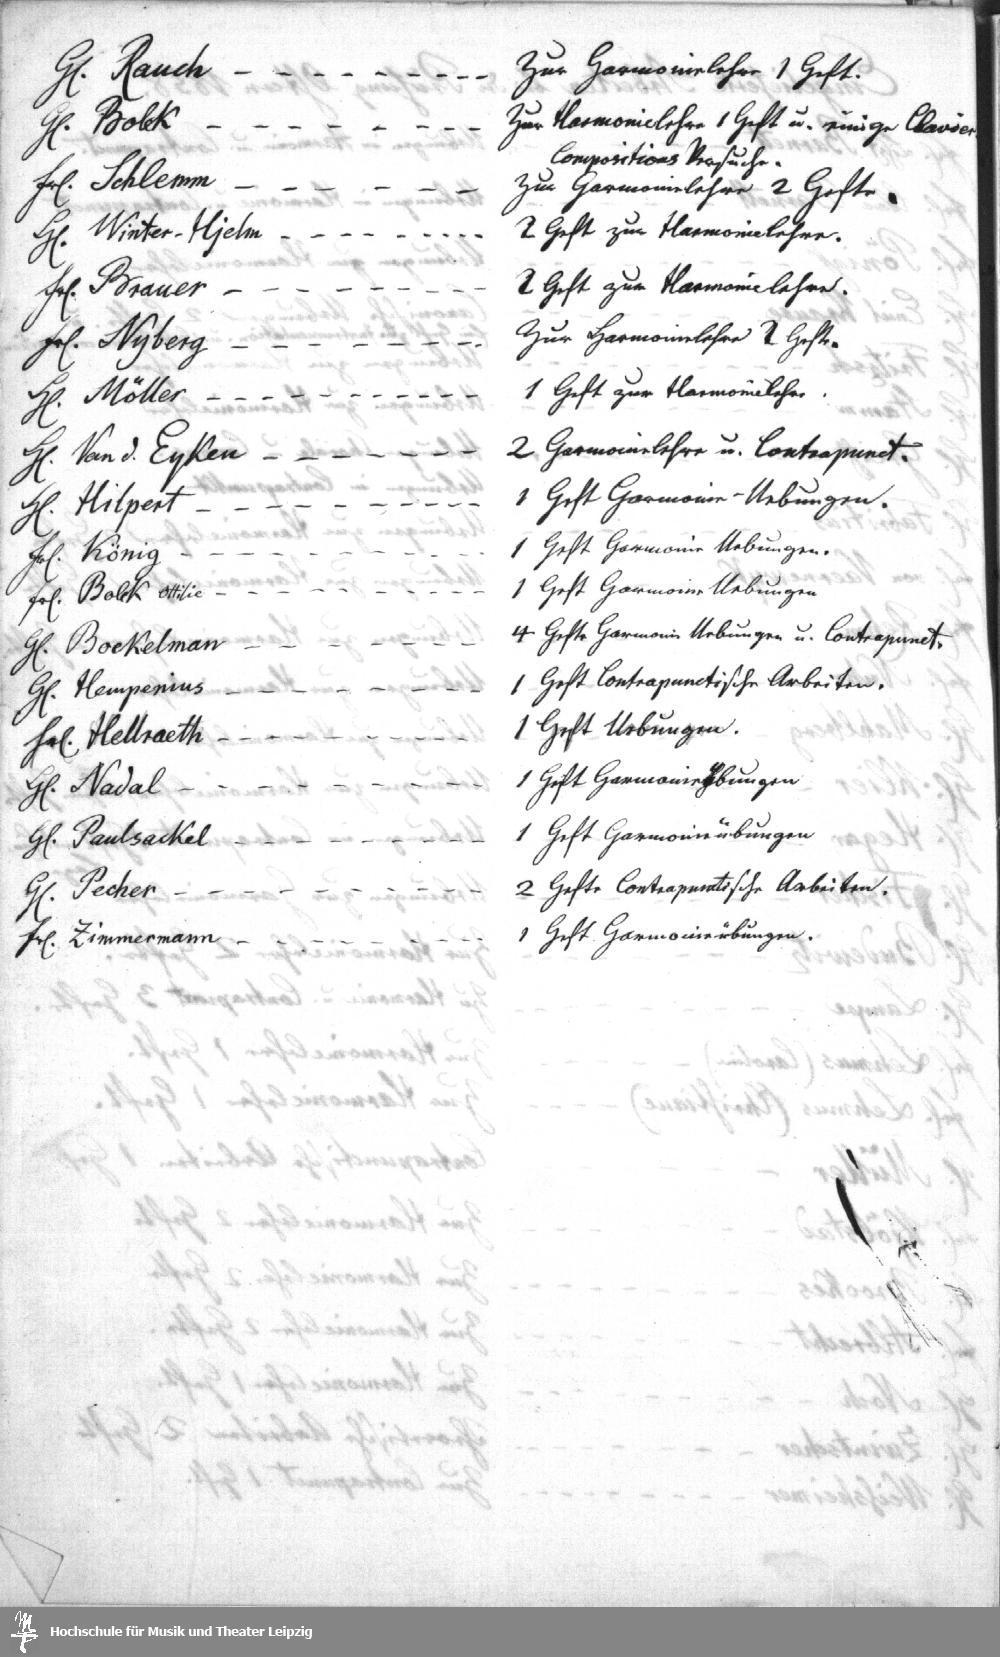 H. Rauch - - - - - - - - - Zur Harmonielehre 1 Heft.
H. Bolck - - - - - - - - Zur Harmonielehre 1 Heft u. einige Clavier
Compositions Versuche.
Frl. Schlemm - - - - - - - Zur Harmonielehre 2 Hefte.
H. Winter-Hjelm - - - - - - - - - 2 Heft zur Harmonielehre.
Frl. Brauer - - - - - - - - - 2 Heft zur Harmonielehre.
Frl. Nyberg - - - - - - - - Zur Harmonielehre 2 Hefte.
H. Möller - - - - - - - - - - - 1 Heft zur Harmonielehre.
H. Van d. Eyken - - - - - - - 2 Harmonielehre u. Contrapunct.
H. Hilpert - - - - - - - - - - 1 Heft Harmonie-Uebungen.
Frl. König - - - - - - - - - - 1 Heft Harmonie Uebungen.
Frl. Bolck Ottilie - - - - - - - - - 1 Heft Harmonie Uebungen
H. Bockelman - - - - - - - 4 Hefte Harmonie Uebungen u. Contrapunct.
H. Hempenius - - - - - - - - - 1 Heft Contrapunctische Arbeiten.
Frl. Hellraeth - - - - - - - - - 1 Heft Uebungen.
H. Nadal - - - - - - - - - 1 Heft Harmonieübungen
H. Paulsackel - - - - - - - - - 1 Heft Harmonieübungen
H. Pecher - - - - - - - - - - 2 Hefte Contrapunctische Arbeiten.
Frl. Zimmermann - - - - - - - - 1 Heft Harmonieübungen.
Hochschule für Musik und Theater Leipzig